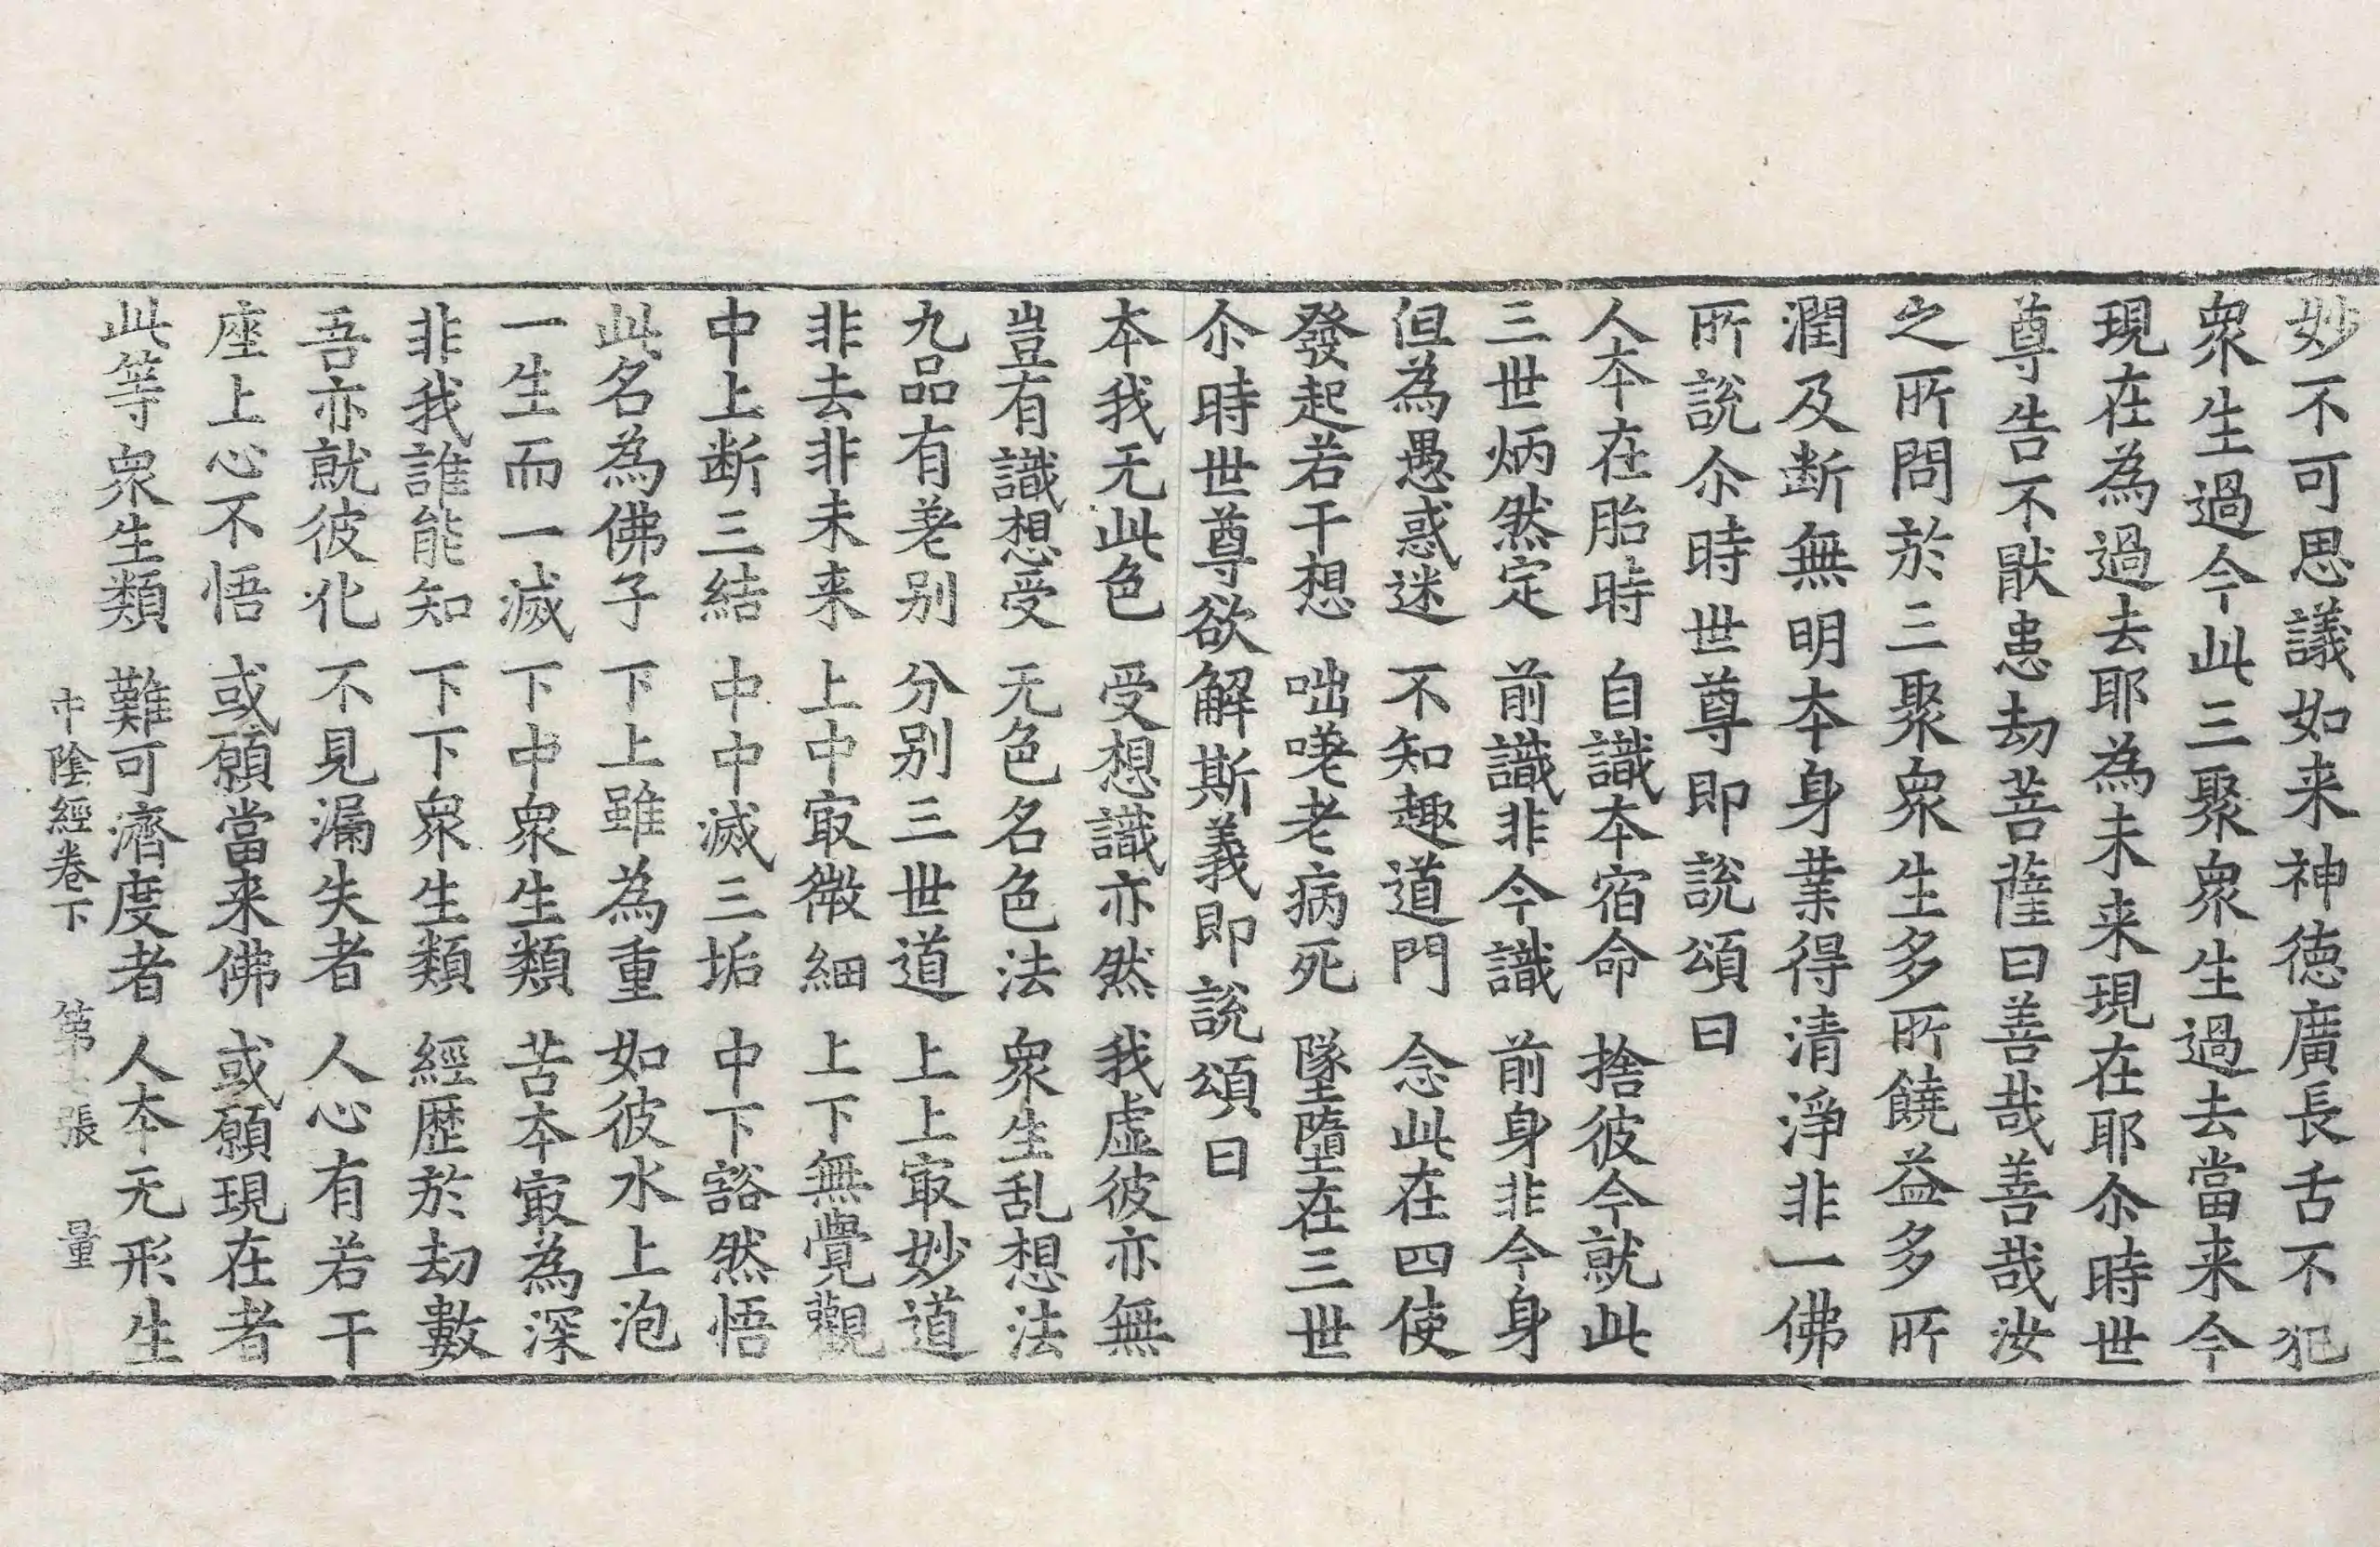 妙不可思議如来神德廣長舌不犯
衆生過今此三聚衆生過去當来今
現在為過去耶為未来現在耶尒時世
尊告不猒患劫菩薩曰善哉善哉汝
之所問於三聚衆生多所饒益多所
潤及断無明本身業得清淨非一佛
所說尒時世尊即說頌曰
人本在胎時　自識本宿命　捨彼今就此
三世炳然定　前識非今識　前身非今身
但為愚惑迷　不知趣道門　念此在四使
發起若干想　咄嗟老病死　墜墮在三世
尒時世尊欲解斯義即說頌曰
本我无此色　受想識亦然　我虛彼亦無
豈有識想受　无色名色法　衆生乱想法
九品有差别　分别三世道　上上㝡妙道
非去非未来　上中㝡微細　上下無覺觀
中上断三結　中中滅三垢　中下豁然悟
此名為佛子　下上雖為重　如彼水上泡
一生而一滅　下中衆生類　苦本㝡為深
非我誰能知　下下衆生類　經歷於劫數
吾亦就彼化　不見漏失者　人心有若干
座上心不悟　或願當来佛　或願現在者
此等衆生類　難可濟度者　人本无形生
中陰經卷下　第張　量